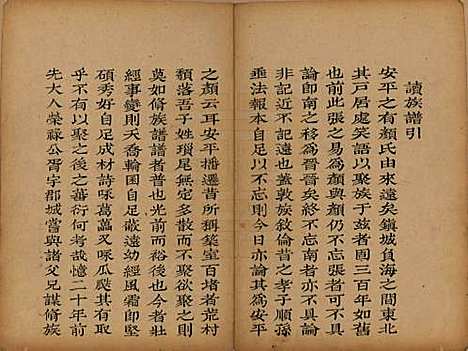 讀族譜引
安平之有顏氏由來遠矣鎮城負海之間東北
其戶居處笑語以聚族于茲者固三百年如舊
也前此張之易為顏與顏仍不忘張者可不具
論即南之移為晉晉終不忘南者亦不具論要
非記近不記遠也蓋敦族敘倫昔之孝子順孫
垂法報本自足以不忘則今日亦論其為安平
之顏云耳安平播遷昔所稱築室百堵者荒村
頹落吾子姓瑣尾無定多不聚欲聚則可先而
莫如脩族譜譜者普也光前裕後也今者壯
經事變則天喬輪囷自足蔽遠幼經風霜即堅
碩秀好自足成材詩咏葛藟又咏瓜瓞其有固
乎不有以聚之後之蕃衍何考哉憶二十年前
先大人榮祿公胥宇郡城嘗與諸父兄謀脩族